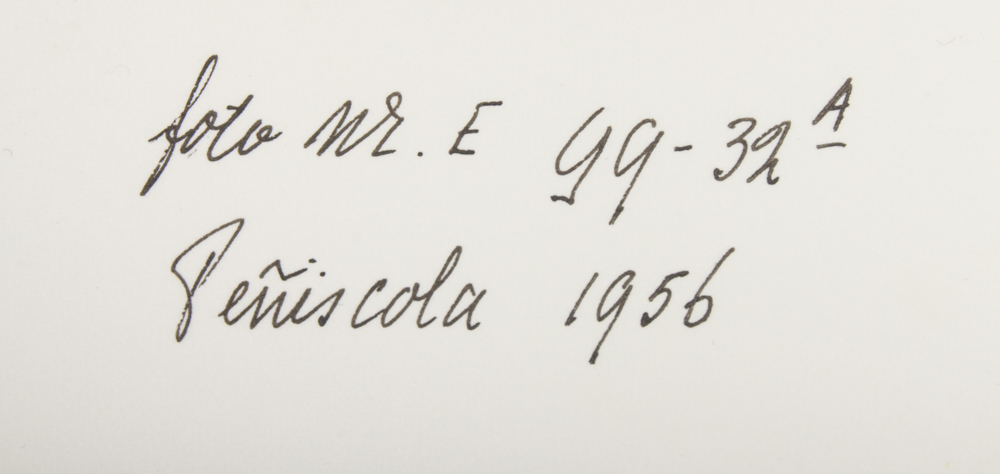 foto Nr. E 99-32A
Peñiscola 1956